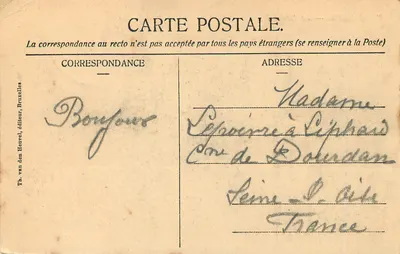 CARTE POSTALE.
La correspondance au recto n'est pas acceptée par tous les pays étrangers (se renseigner à la Poste)
CORRESPONDANCE
ADRESSE
Th. van den Heuvel, éditeur, Bruxelles
Bonjour
Madame
Lepoivre à Liphard
Cne de Dourdan
Seine-&-Oise
France